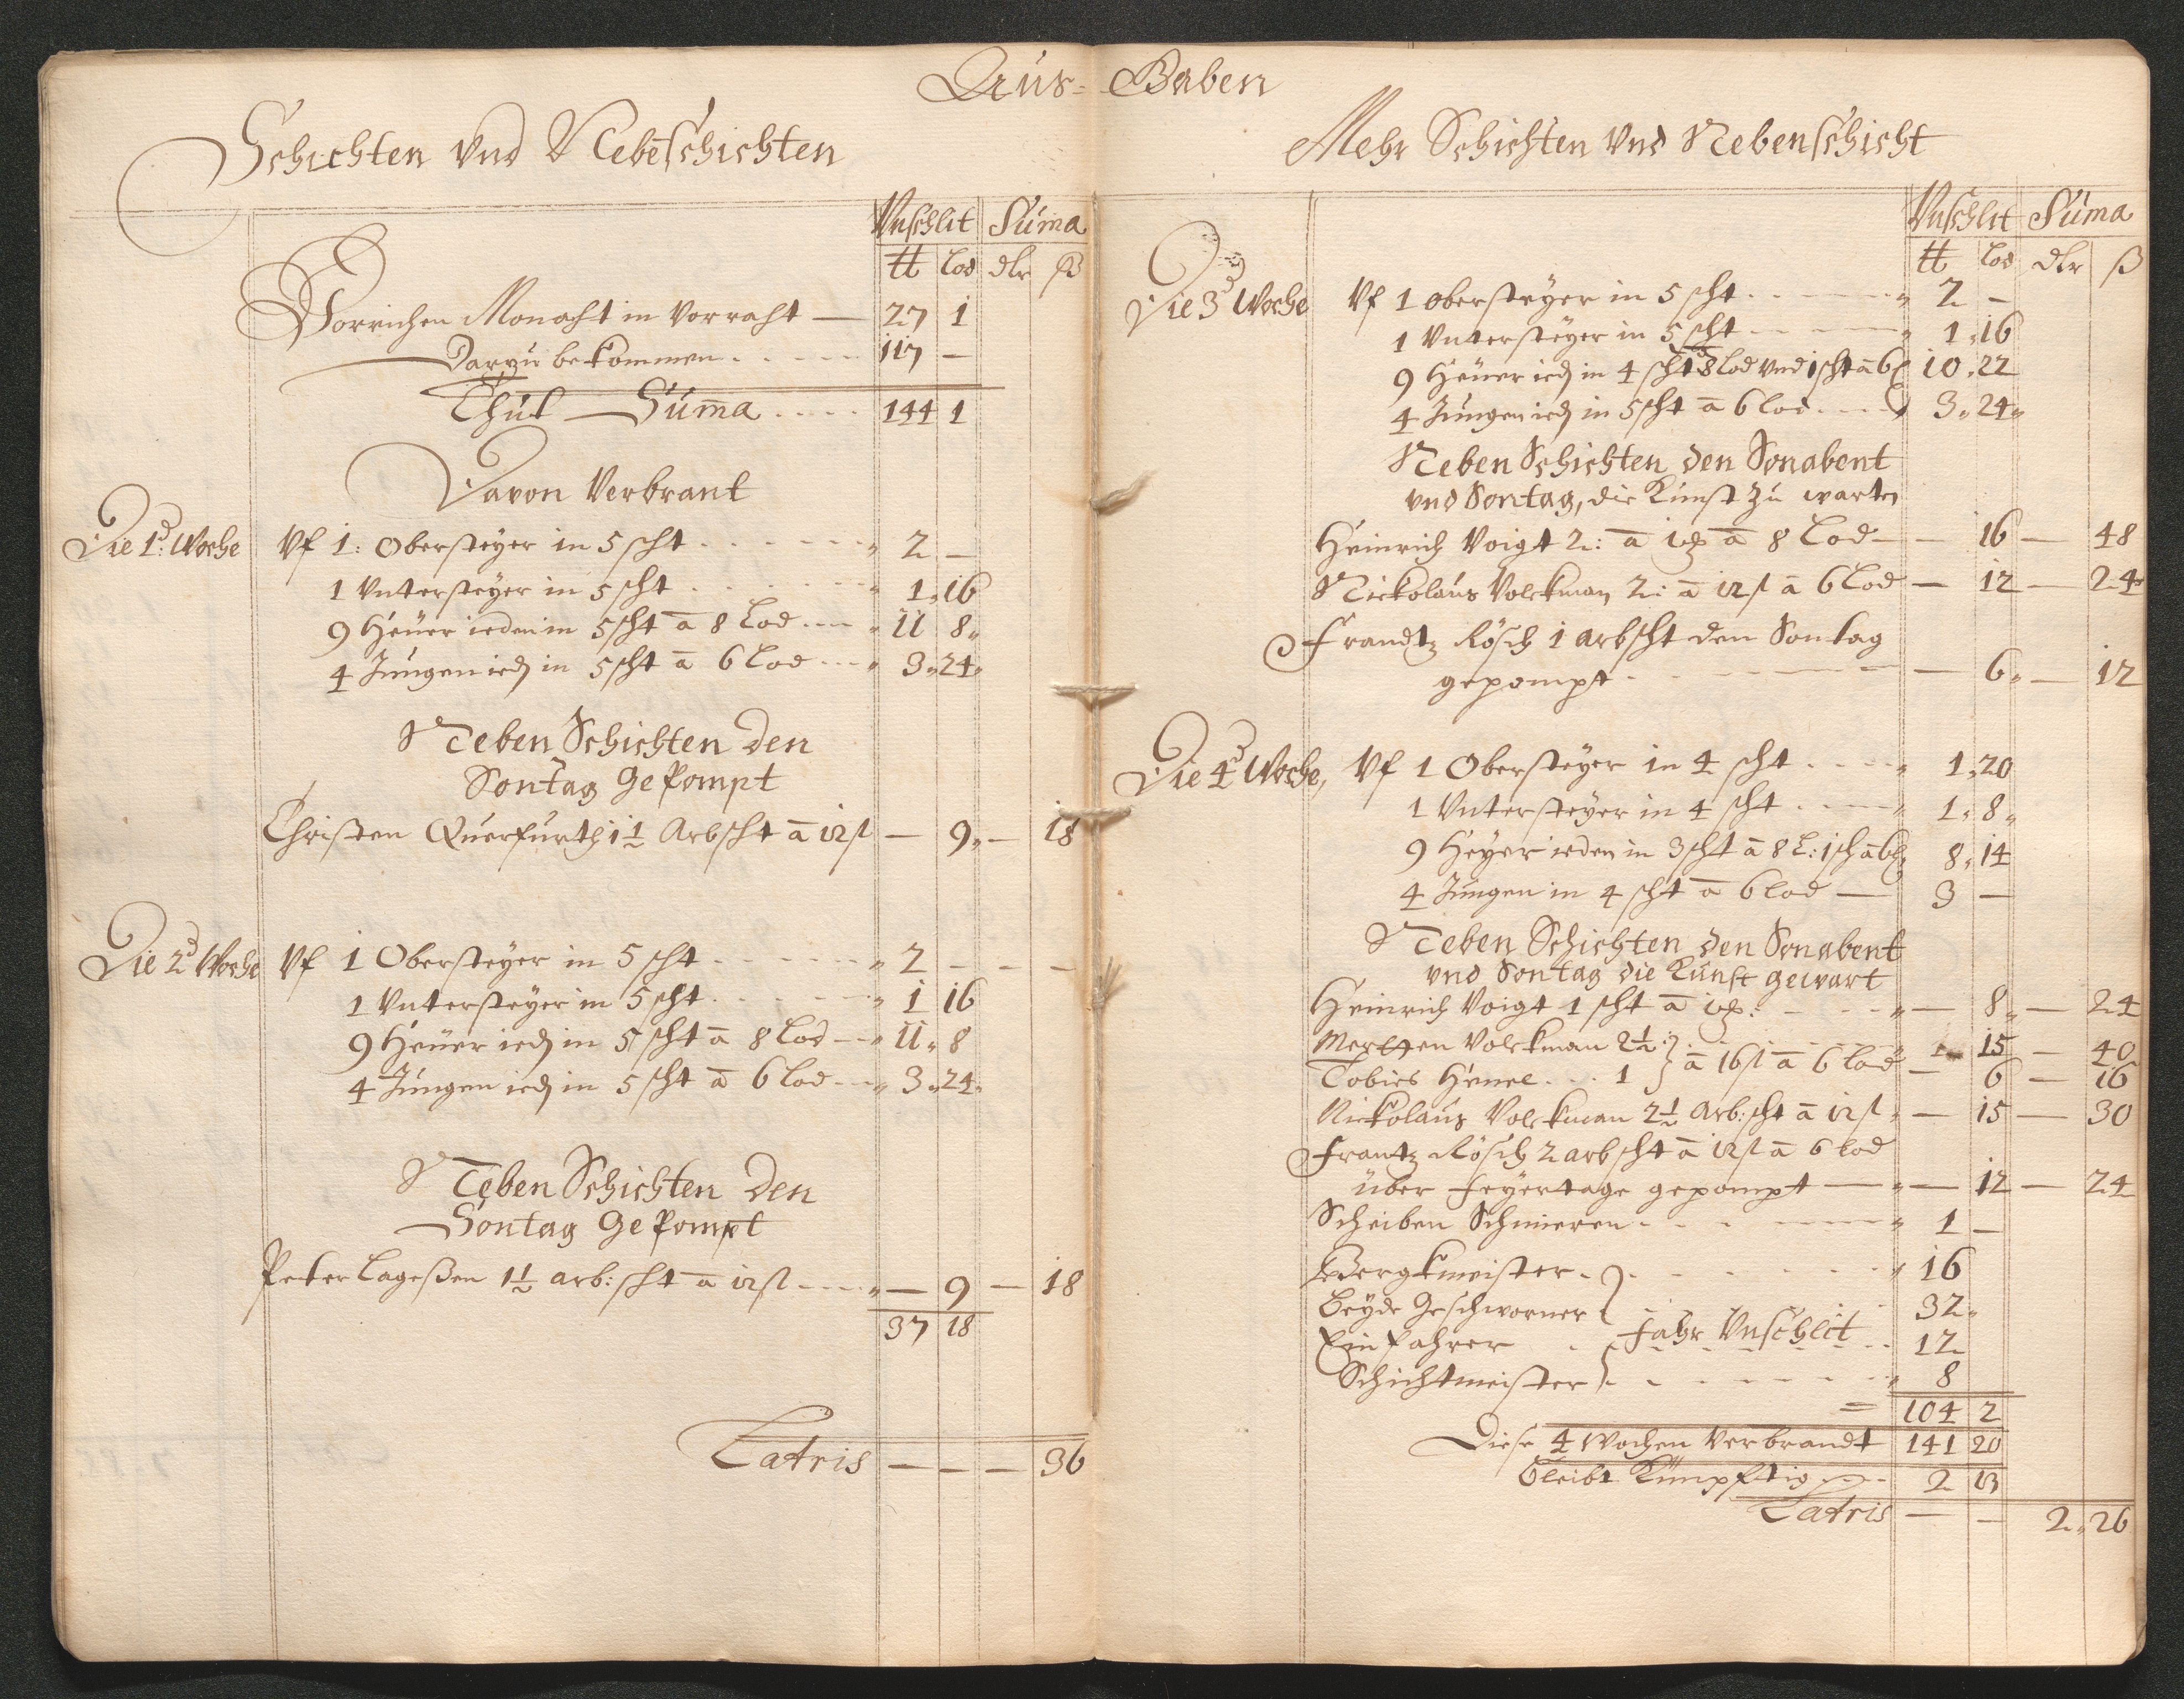 Aus- Gaben
Schichten Vnd Nebeschichten
Vnschlit Suma
tt Lod dlr ß
Vorrichen Monaht in Vorraht — 27 1
Darzu bekommen 117 —
Thut Suma 144 1
Davon Verbrant
Die 1: Woche Vf 1: Obersteyer in 5 scht 2 —
1 Vntersteyer in 5 scht 1 16
9 Heüer ieden in 5 scht a 8 Lod 11 8
4 Jungen ied in 5 scht a 6 Lod 3 24
Neben Schichten den
Sontag Gepompt
Christen Querfurth 1 1/2 Arbscht a 12 ß — 9 — 18
Die 2 Woche Vf 1 Obersteyer in 5 scht 2 — — —
1 Vntersteyer in 5 scht 1 16
9 Heüer ied in 5 scht a 8 Lod 11 8
4 Jungen ied in 5 scht a 6 Lod 3 24
Neben Schichten den
Sontag Gepompt
Peter Lageßen 1 1/2 arb: scht a 12 ß — 9 — 18
37 18
Latris — — — 36
Mehr Schichten Vnd Nebenschicht
Vnschlit Suma
tt Lod dlr ß
Die 3 Woche Vf 1 Obersteyer in 5 scht 2 —
1 Vntersteyer in 5 scht 1 16
9 Heüer ied in 4 scht 8 Lod vnd 1 scht a 6 10 22
4 Jungen ied in 5 scht a 6 Lod 3 24
Neben Schichten den Sonabent
vnd Sontag, die Kunst zu warten
Heinrich Voigt 2: a a 8 Lod — 16 — 48
Nickolaus Volckman 2: a 12 ß a 6 Lod — 12 — 24
Frandtz Rösch 1 arbscht den Sontag
gepompt — 6 — 12
Die 4 Woche, Vf 1 Obersteyer in 4 scht 1 20
1 Vntersteyer in 4 scht 1 8
9 Heyer ieden in 3 scht a 8 L: 1 sch a 6 8 14
4 Jungen in 4 scht a 6 Lod — 3 —
Neben Schichten den Sonabent
vnd Sontag die Kunst gewart
Heinrich Voigt 1 scht a — 8 — 24
Merten Volckman 2 1/2 15 — 40
Tobies Henel 1 } a 16 ß a 6 Lod — 6 — 16
Nickolaus Volckman 2 1/2 Arb: scht a 12 ß — 15 — 30
Frantz Rösch 2 arbscht a 12 ß a 6 Lod
über Feyertage gepompt — 12 — 24
Scheiben Schmieren 1 —
Bergkmeister 16
Beyde Geschworner 32
Einfahrer Fahr Vnschlit 12
Schichtmeister 8
104 2
Diese 4 Wochen Verbrandt 141 20
Bleibt Künpfftig 2 13
Latris — — 2 26